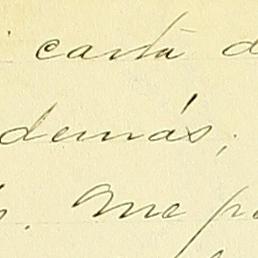 carta d
demás;
. Me p